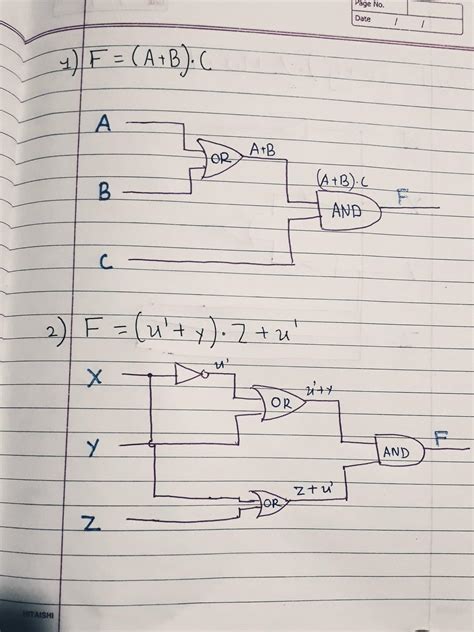 Page No.
Date / /
1) F = (A+B)·C
A
OR
A+B
B
(A+B)·C
F
AND
C
2) F = (u'+y)·Z+u'
X
u'
OR
u'+y
Y
AND
F
OR
Z+u'
Z
HITAISHI